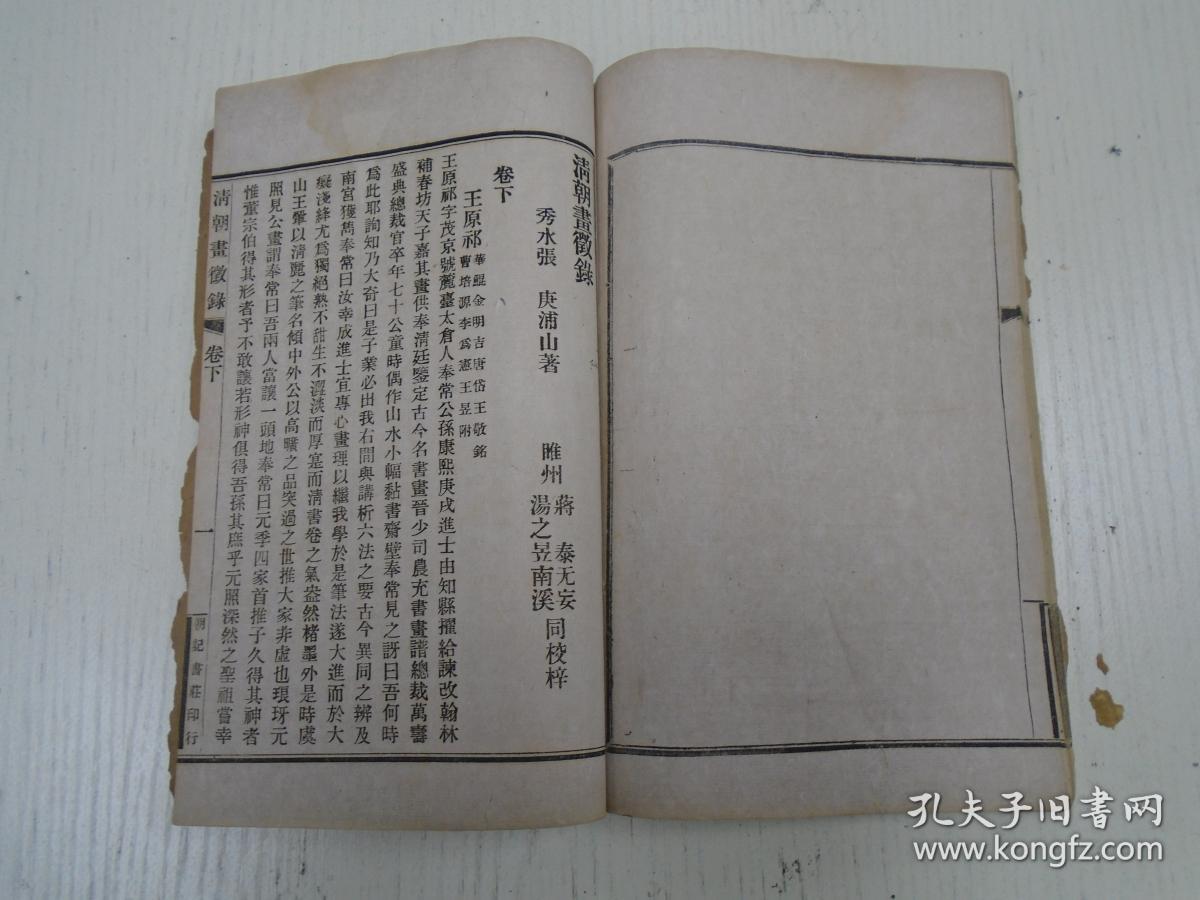 清朝畫徵錄
秀水張　庚浦山著
睢州
蔣　泰无妄
湯之昱南溪
同校梓
卷下
王原祁
華鯤金明吉唐岱王敬銘
曹培源李爲憲王昱附
王原祁字茂京號麓臺太倉人奉常公孫康熙庚戌進士由知縣擢給諫改翰林
補春坊天子嘉其畫供奉清廷鑒定古今名書畫晉少司農充書畫譜總裁萬壽
盛典總裁官卒年七十公童時偶作山水小幅黏書齋壁奉常見之訝曰吾何時
爲此耶詢知乃大奇曰是子業必出我右間與講析六法之要古今異同之辨及
南宮獲雋奉常曰汝幸成進士宜專心畫理以繼我學於是筆法遂大進而於大
癡淺絳尤爲獨絕熟不甜生不澀淡而厚寔而清書卷之氣盎然楮墨外是時虞
山王翬以清麗之筆名傾中外公以高曠之品突過之世推大家非虛也瑯玡元
照見公畫謂奉常曰吾兩人當讓一頭地奉常曰元季四家首推子久得其神者
惟董宗伯得其形者予不敢讓若形神俱得吾孫其庶乎元照深然之聖祖嘗幸
清朝畫徵錄　卷下　一　朝記書莊印行
孔夫子旧书网
www.kongfz.com